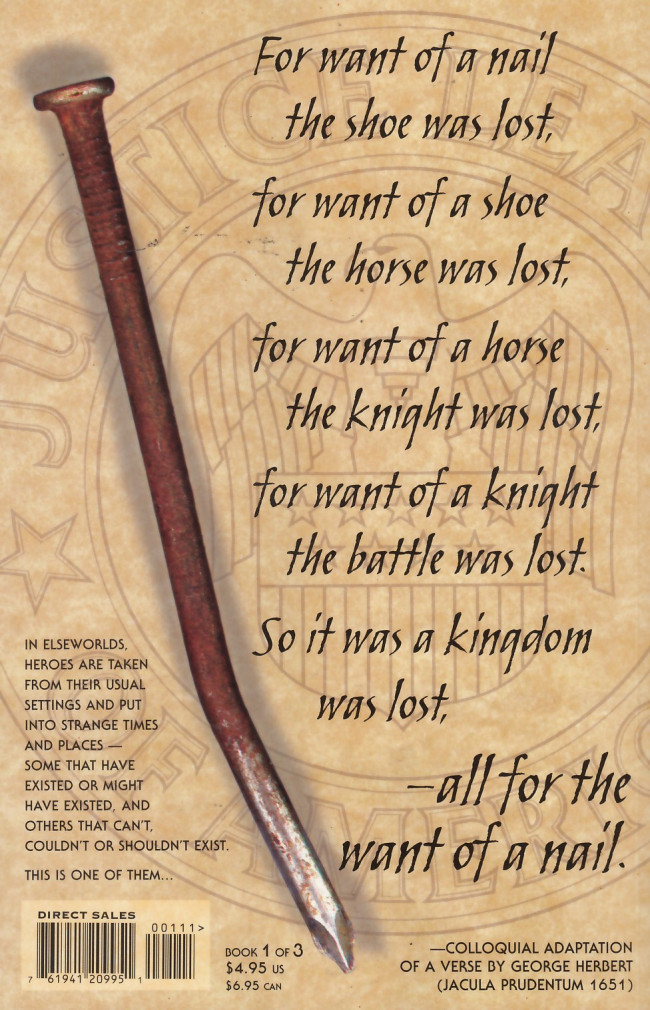 For want of a nail
the shoe was lost,
for want of a shoe
the horse was lost,
for want of a horse
the knight was lost,
for want of a knight
the battle was lost.
So it was a kingdom
was lost,
—all for the
want of a nail.
JUSTICE LEAGUE
OF AMERICA
IN ELSEWORLDS,
HEROES ARE TAKEN
FROM THEIR USUAL
SETTINGS AND PUT
INTO STRANGE TIMES
AND PLACES —
SOME THAT HAVE
EXISTED OR MIGHT
HAVE EXISTED, AND
OTHERS THAT CAN'T,
COULDN'T OR SHOULDN'T EXIST.
THIS IS ONE OF THEM...
DIRECT SALES
00111>
7 61941 20995 1
BOOK 1 OF 3
$4.95 US
$6.95 CAN
—COLLOQUIAL ADAPTATION
OF A VERSE BY GEORGE HERBERT
(JACULA PRUDENTUM 1651)